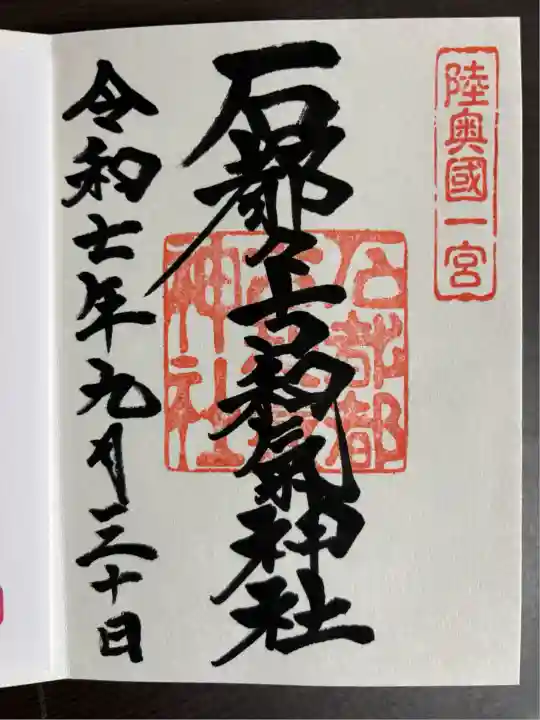 陸奥國一宮
石都々古和氣神社
石都都
古和氣
神社
令和七年九月三十日